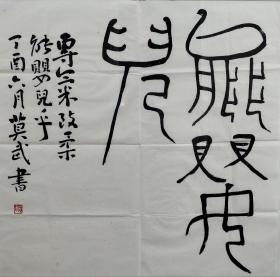 能嬰
兒
專氣致柔
能嬰兒乎
丁酉六月莫武書